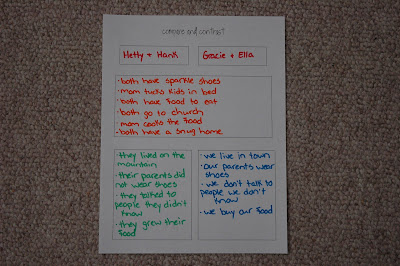 compare and contrast
Hetty + Hank
Gracie + Ella
•both have sparkle shoes
•mom tucks kids in bed
•both have food to eat
•both go to church
•mom cooks the food
-both have a snug home
•they lived on the
mountain
•their parents did
not wear shoes
•they talked to
people they didn't
know
•they grew their
food
•we live in town
•our parents wear
shoes
•we don't talk to
people we don't
know
•we buy our food